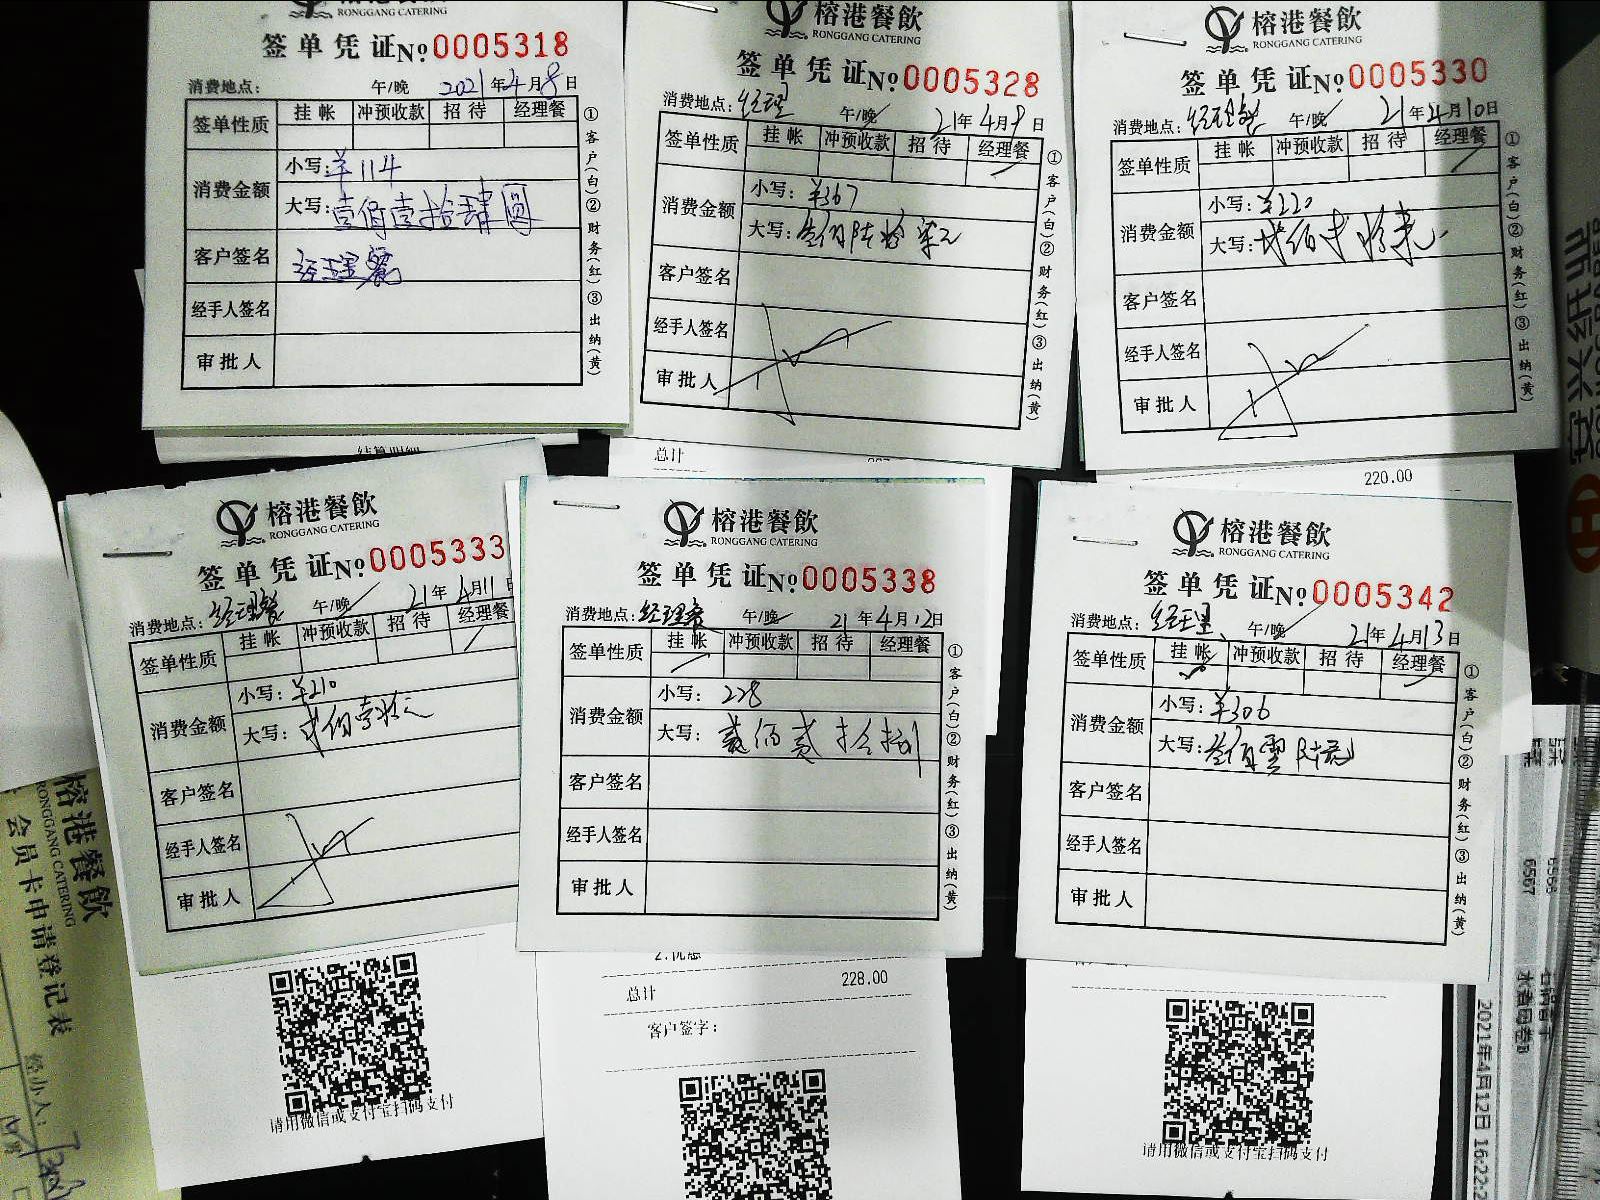 榕港餐飲
RONGGANG CATERING
签单凭证№0005318
消费地点: 午/晚 2021年4月8日
签单性质 挂帐 冲预收款 招待 经理餐
消费金额
小写:羊114
大写:壹佰壹拾肆圆
客户签名 经理餐
经手人签名
审批人
①客户(白)②财务(红)③出纳(黄)
榕港餐飲
RONGGANG CATERING
签单凭证№0005328
消费地点:经理 午/晚 21年4月9日
签单性质 挂帐 冲预收款 招待 经理餐
消费金额
小写:¥367
大写:叁佰陆拾柒元
客户签名
经手人签名
审批人
①客户(白)②财务(红)③出纳(黄)
总计
榕港餐飲
RONGGANG CATERING
签单凭证№0005330
消费地点:经理餐 午/晚 21年4月10日
签单性质 挂帐 冲预收款 招待 经理餐
消费金额
小写:¥220
大写:贰佰贰拾元
客户签名
经手人签名
审批人
①客户(白)②财务(红)③出纳(黄)
220.00
榕港餐飲
RONGGANG CATERING
签单凭证№0005333
消费地点:经理餐 午/晚 21年4月11日
签单性质 挂帐 冲预收款 招待 经理餐
消费金额
小写:¥210
大写:贰佰壹拾元
客户签名
经手人签名
审批人
请用微信或支付宝扫码支付
榕港餐飲
RONGGANG CATERING
签单凭证№0005338
消费地点:经理餐 午/晚 21年4月12日
签单性质 挂帐 冲预收款 招待 经理餐
消费金额
小写: 228
大写: 贰佰贰拾捌
客户签名
经手人签名
审批人
①客户(白)②财务(红)③出纳(黄)
2.优惠
总计 228.00
客户签字:
榕港餐飲
RONGGANG CATERING
签单凭证№0005342
消费地点:经理 午/晚 21年4月13日
签单性质 挂帐 冲预收款 招待 经理餐
消费金额
小写:¥306
大写:叁佰零陆元
客户签名
经手人签名
审批人
①客户(白)②财务(红)③出纳(黄)
请用微信或支付宝扫码支付
榕港餐飲
RONGGANG CATERING
会员卡申请登记表
经办人:
6567
2021年4月12日 16:22:2